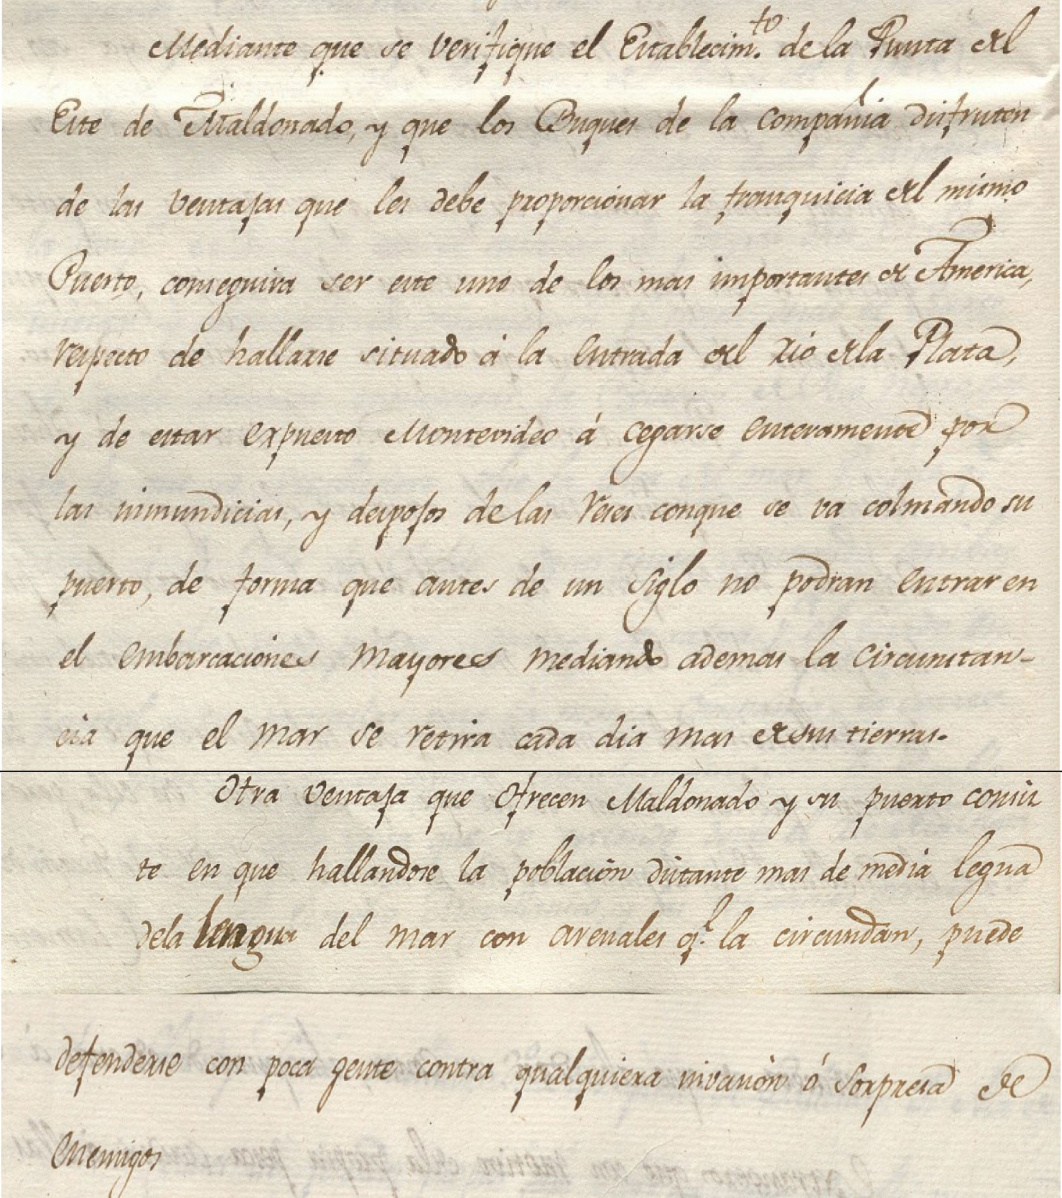 Mediante que se verifique el Establecim.to de la Punta del
Este de Maldonado, y que los Buques de la Compañia disfruten
de las ventajas que les debe proporcionar la franquicia del mismo
Puerto, conseguira ser este uno de los mas importantes de America,
respecto de hallarse situado á la entrada del Rio dela Plata,
y de estar expuesto Montevideo á cegarse enteramente por
las inmundicias, y despojos de las reses conque se va colmando su
puerto, de forma que antes de un siglo no podran entrar en
el embarcaciones mayores mediando ademas la circunstan-
cia que el mar se retira cada dia mas de sus tierras.
Otra ventaja que ofrecen Maldonado y su puerto consis
te en que hallandose la poblacion distante mas de media legua
dela lengua del mar con arenales q.e la circundan, puede
defenderse con poca gente contra qualquiera invasion ó sorpresa de
enemigos